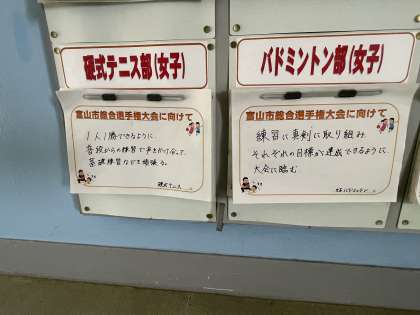 硬式テニス部(女子)
富山市総合選手権大会に向けて
1人1勝できるように
普段からの練習で声をかけ合って、
基礎練習なども頑張る。
硬式テニス
バドミントン部(女子)
富山市総合選手権大会に向けて
練習に真剣に取り組み
それぞれの目標が達成できるように、
大会に臨む